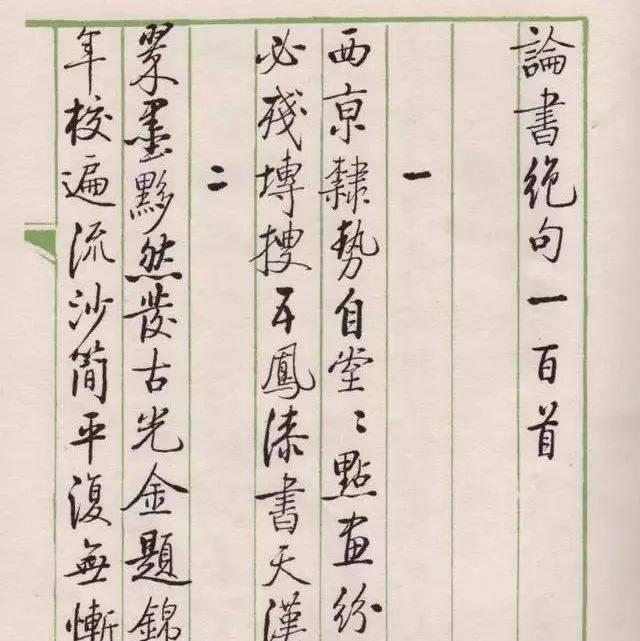 論書絶句一百首
一
西京隸勢自堂〻點畫紛
必殘塼搜五鳳漆書天漢
二
翠墨黟然發古光金題錦
年校遍流沙簡平復無慚